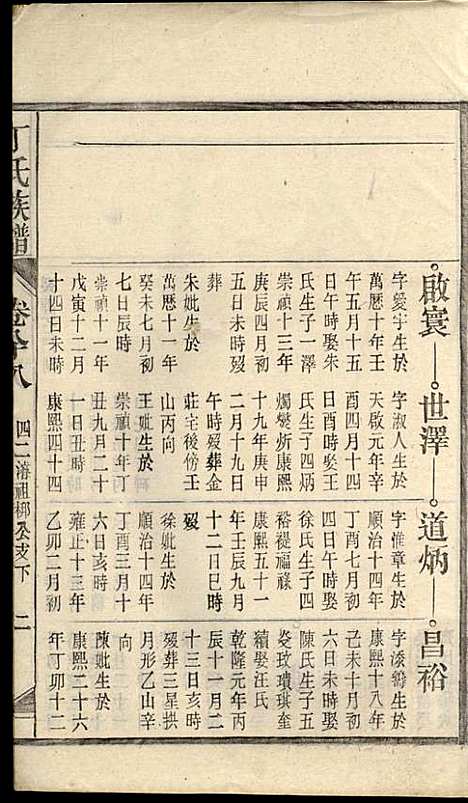 啟寰 世澤 道炳 昌裕
字愛宇生於
萬曆十年壬
午五月十五
日午時娶朱
氏生子一澤
崇禎十三年
庚辰四月初
五日未時歿
葬
朱妣生於
萬曆十一年
癸未七月初
七日辰時
崇禎十一年
戊寅十二月
十四日未時
字淑人生於
天啟元年辛
酉四月十四
日酉時娶王
氏生子四炳
燭爕炘康熙
十九年庚申
二月十九日
午時歿葬金
莊宅後傍王
山丙向
王妣生於
崇禎十年丁
丑九月二十
一日丑時
康熙四十四
字惟章生於
順治十四年
丁酉七月初
四日午時娶
徐氏生子四
裕禔福祿
康熙五十一
年壬辰九月
十二日巳時
歿
徐妣生於
順治十四年
丁酉三月十
六日亥時
雍正十三年
乙卯二月初
字滾鶵生於
康熙十八年
己未十月初
六日未時娶
陳氏生子三
琖玫璝琪奎
續娶汪氏
乾隆元年丙
辰十一月二
十三日亥時
歿葬三星拱
月形乙山辛
向
陳妣生於
康熙二十六
年丁卯十二
丁氏族譜
卷八
四二濬祖梛公支下
二